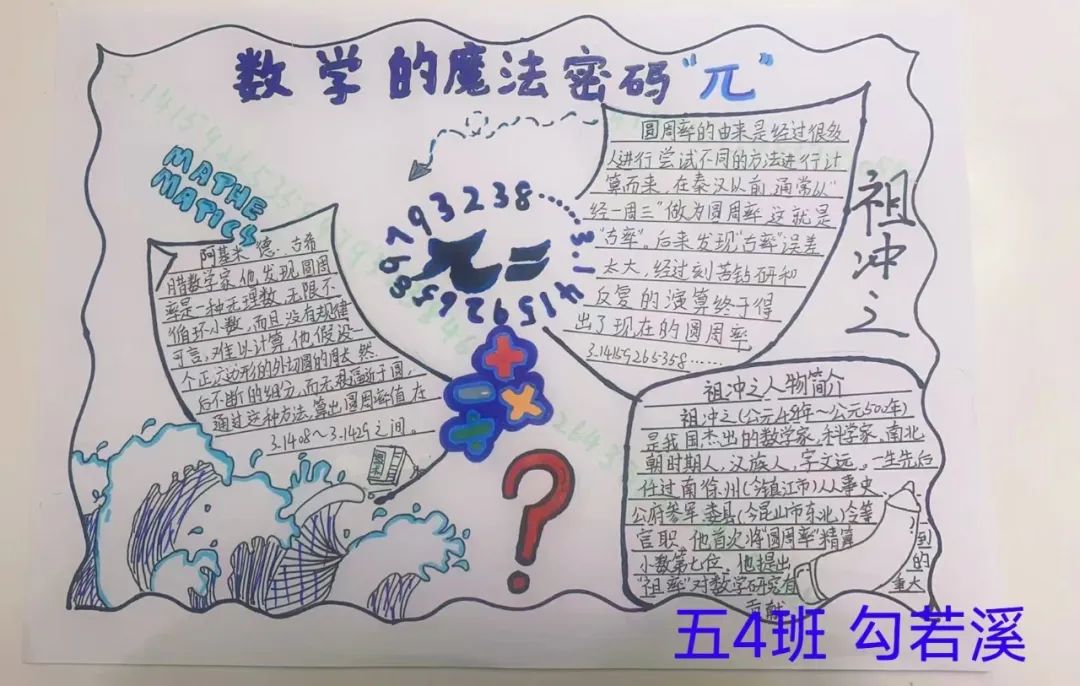 数学的魔法密码"兀"
MATHE
MATICS
阿基米德.古希
腊数学家,他发现圆周
率是一种无理数,无限不
循环小数,而且没有规律
可言,难以计算,他假设一
个正六边形的外切圆的周长,然
后不断的细分,而无限逼近于圆,
通过这种方法,算出圆周率值在
3.1408~3.1429之间。
3.141592653589793238......
兀=
+
- ×
÷
?
圆周率的由来是经过很多
人进行尝试不同的方法进行计
算而来,在秦汉以前,通常以"
经一周三"做为圆周率,这就是
"古率"。后来发现"古率"误差
太大,经过刻苦钻研和
反复的演算终于得
出了现在的圆周率
3.14159265358......
祖冲之
祖冲之人物简介
祖冲之(公元429年~公元500年)
是我国杰出的数学家,科学家,南北
朝时期人,汉族人,字文远。一生先后
任过南徐州(今镇江市)从事史
公府参军,娄县(今昆山市东北)令等
官职,他首次将"圆周率"精算到
小数第七位,他提出的
"祖率"对数学研究有重大
贡献
五4班 勾若溪